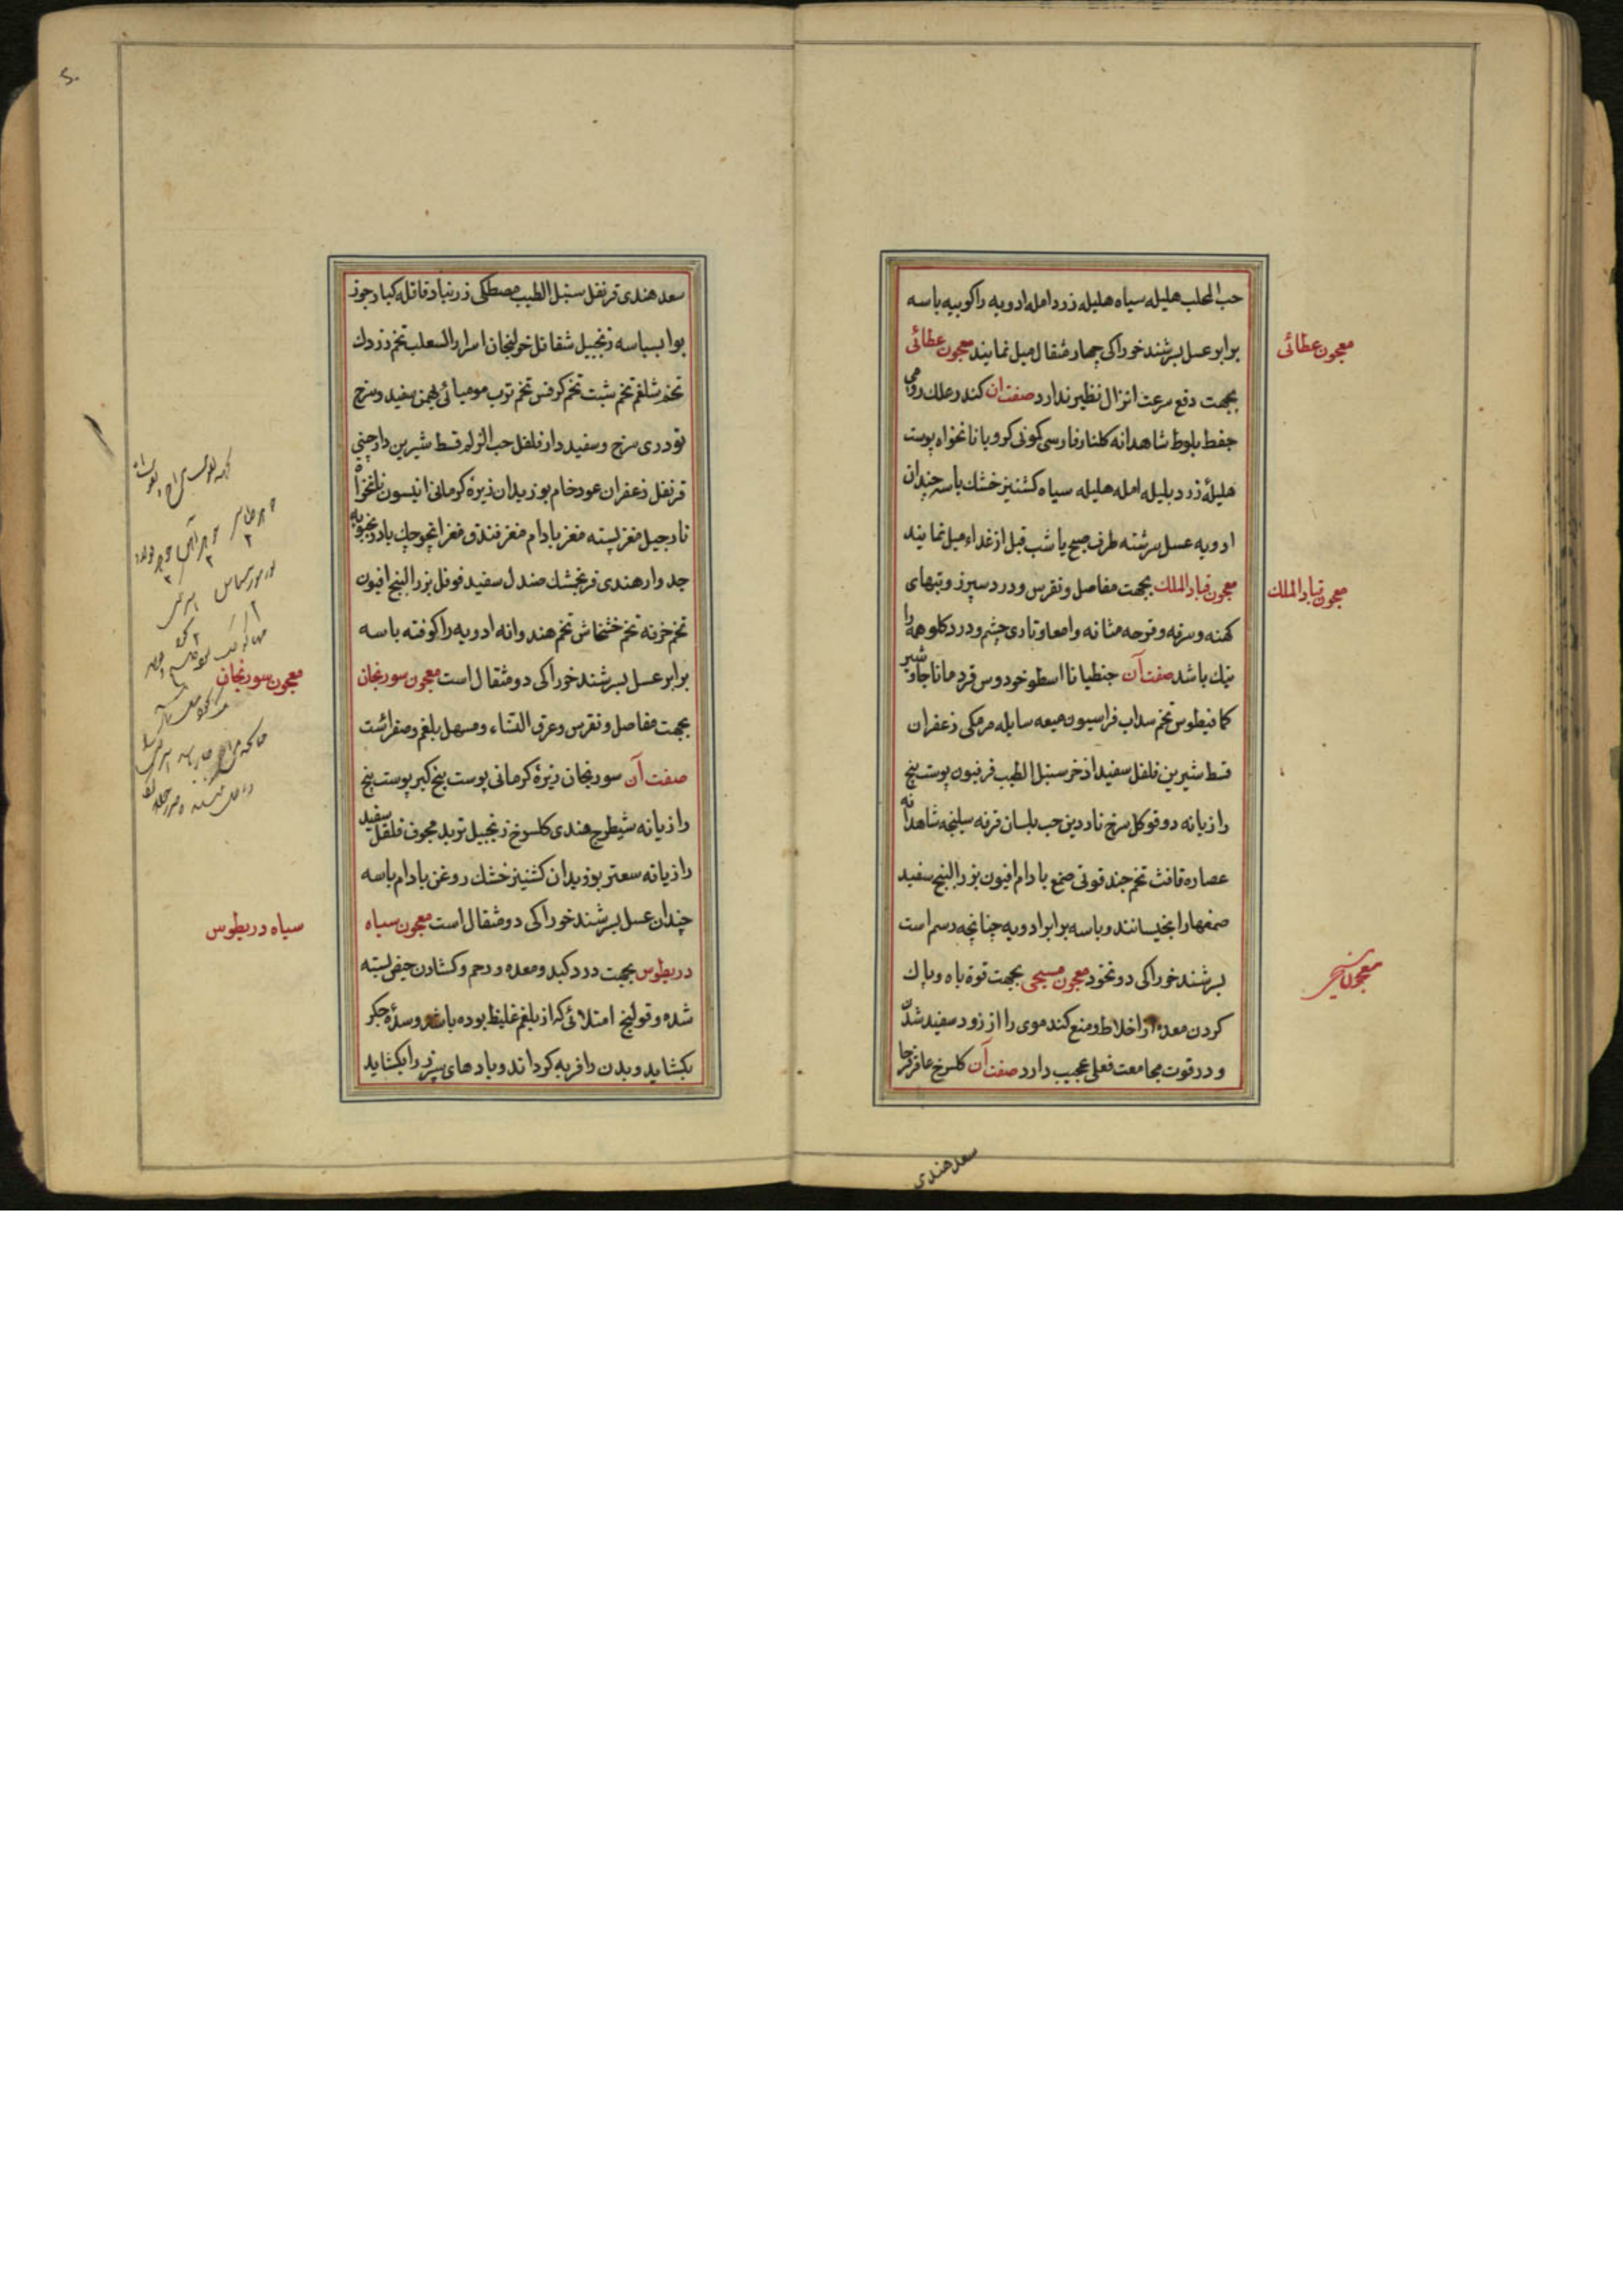 حب المحلب هلیله سیاه هلیله زرد امله ادویه را کوبیه باسه
برابر عسل بسرشند خوراکی چهار مثقال میل نمایند معجون عطائی
معجون عطائی
بجهت دفع سرعت انزال نظیر ندارد صفت ان کندر علك رومی
جفط بلوط شاهدانه کلنار فارسی کونی کرویا نانخواه پوست
هلیلهٔ زرد بلیله امله هلیله سیاه کشنیز خشك باسه چندان
ادویه عسل سرشته طرف صبح یا شب قبل از غداء میل نمایند
معجون قباد الملك بجهت مفاصل و نقرس و درد سپرز و تبهای
معجون قباد الملك
کهنه و سرفه و قرحه مثانه و امعا و تاری چشم و درد کلو همه را
نیك باشد صفت آن جنطیانا اسطوخودوس قردمانا جاوشیر
کمافیطوس تخم سداب فراسیون میعه سایله مرمکی زعفران
قسط شیرین فلفل سفید اذخر سنبل الطیب فرفیون پوست بیخ
رازیانه دوقو کل سرخ ناردین حب بلسان قرفه سلیخه شاهدانه
عصاره قافث تخم جند قوتی صمغ بادام افیون بزر البنج سفید
صمغها را بخیسانند و باسه برابر ادویه چنانچه رسم است
بسرشند خوراکی دو نخود معجون مسیحی بجهت قوة باه و پاك
معجون مسیحی
کردن معده از اخلاط و منع کند موی را از زود سفید شدن
و در قوت مجامعت فعلی عجیب دارد صفت آن کلسرخ عاقرقرحا
سعد هندی
سعد هندی قرنفل سنبل الطیب مصطکی زرنباد قاقله کبار جوز
بوا بسباسه زنجبیل شقاقل خولنجان اسرار السعلب تخم زردك
تخم شلغم تخم شبت تخم کرفس تخم ترب مومیائی بهمن سفید و سرخ
تودری سرخ و سفید دارفلفل حب الزلم قسط شیرین دارچینی
قرنفل زعفران عود خام بوزیدان زیرهٔ کرمانی انیسون نانخواه
نارجیل مغز پسته مغز بادام مغز فندق مغز انچوچك بادرنجبویه
جدوار هندی فرنجمشك صندل سفید فوفل بزر البنج افیون
تخم خرفه تخم خشخاش تخم هندوانه ادویه را کوفته باسه
برابر عسل بسرشند خوراکی دو مثقال است معجون سورنجان
معجون سورنجان
بجهت مفاصل و نقرس و عرق النساء و مسهل بلغم و صفراست
صفت آن سورنجان زیرهٔ کرمانی پوست بیخ کبر پوست بیخ
رازیانه شیطرج هندی کلسرخ زنجبیل تربد مجوف فلفل سفید
رازیانه سعتر بوزیدان کشنیز خشك روغن بادام باسه
چندان عسل بسرشند خوراکی دو مثقال است معجون سیاه
سیاه دریطوس
دریطوس بجهت درد کبد و معده و رحم و کشادن حیض بسته
شده و قولنج امتلائی که از بلغم غلیظ بوده باشد و سدهٔ جکر
بکشاید و بدن را فربه کرداند و بادهای سپرز را بکشاید